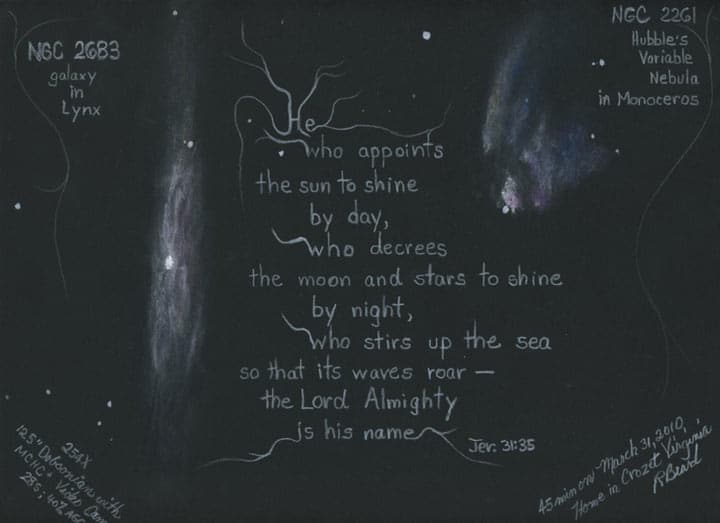 NGC 2683
galaxy
in
Lynx
NGC 2261
Hubble's
Variable
Nebula
in Monoceros
He
who appoints
the sun to shine
by day,
who decrees
the moon and stars to shine
by night,
who stirs up the sea
so that its waves roar —
the Lord Almighty
is his name
Jer. 31:35
254X
12.5" Dobsonian with
MCHC+ Video Cam
28s; 40% AGC
45 min on March 31, 2010,
Home in Crozet Virginia
R Beard